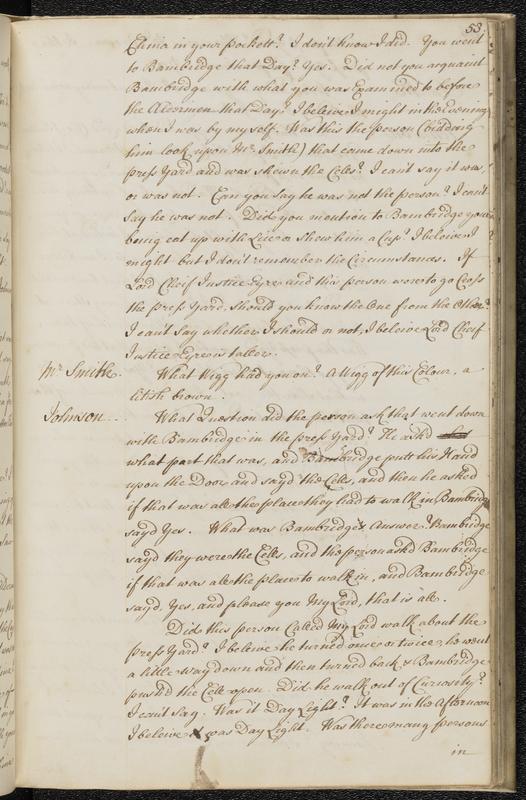 53.
China in your pockett? I don't know I did. You went
to Bambridge that Day? Yes. Did not you acquaint
Bambridge with what you was Examined to before
the Aldermen that Day? I beleive I might in the Evening
when I was by my self. Was this the person (bidding
him look upon Mr. Smith) that came down into the
press Yard and was shewn the Cells? I can't say it was,
or was not. Can you say he was not the person? I can't
say he was not. Did you mention to Bambridge your
being eat up with Lice or Shew him a Cup? I beleive I
might but I don't remember the Circumstances. If
Lord Cheif Justice Eyre and this person were to go Cross
the press Yard, should you know the One from the Other?
I can't say whether I should or not, I beleive Lord Cheif
Justice Eyre is taller.
Mr. Smith. What Wigg had you on? A Wigg of this Colour, a
litish brown.
Johnson. What Question did the person ask that went down
with Bambridge in the press Yard? He ask'd
what part that was, and Bambridge putt his Hand
upon the Door, and sayd the Cells, and then he asked
if that was all the place they had to walk in, Bambridge
sayd Yes. What was Bambridge's Answer? Bambridge
sayd they were the Cells, and the person ask'd Bambridge
if that was all the place to walk in, and Bambridge
sayd. Yes, and please you My Lord, that is all.
Did this person Called My Lord walk about the
press Yard? I beleive he turned once or twice, he went
a little way down and then turned back & Bambridge
push'd the Cell open. Did he walk out of Curiosity?
I can't say. Was it Day Light? It was in the Afternoon
I beleive was Day Light. Was there many persons
in